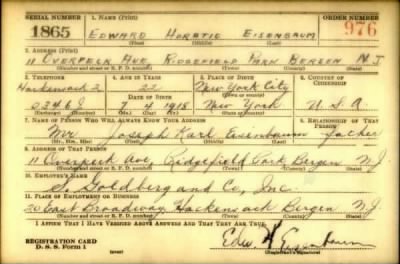 SERIAL NUMBER 1. Name (Print) ORDER NUMBER
1865 EDWARD HORATIO EISENBAUM 976
(First) (Middle) (Last)
2. Address (Print)
11 OVERPECK AVE RIDGEFIELD PARK BERGEN N.J.
(Number and street or R. F. D. number) (Town) (County) (State)
3. Telephone 4. Age in Years 5. Place of Birth 6. Country of Citizenship
Hackensack 2 22 New York City
Date of Birth (Town or county)
7 4 1918 New York U.S.A.
(Exchange) (Number) (Mo.) (Day) (Yr.) (State or country)
7. Name of Person Who Will Always Know Your Address Relationship of That Person
Mr Joseph Karl Eisenbaum father
(Mr., Mrs., Miss) (First) (Middle) (Last)
9. Address of That Person
11 Overpeck Ave, Ridgefield Park Bergen N.J.
(Number and street or R. F. D. number) (Town) (County) (State)
10. Employer's Name
S. Goldberg and Co, Inc.
11. Place of Employment or Business
20 East Broadway Hackensack Bergen N.J.
(Number and street or R. F. D. number) (Town) (County) (State)
I Have Verified Above Answers and That They Are True.
REGISTRATION CARD
D. S. S. Form 1
Edw. H Eisenbaum
(Registrant's signature)